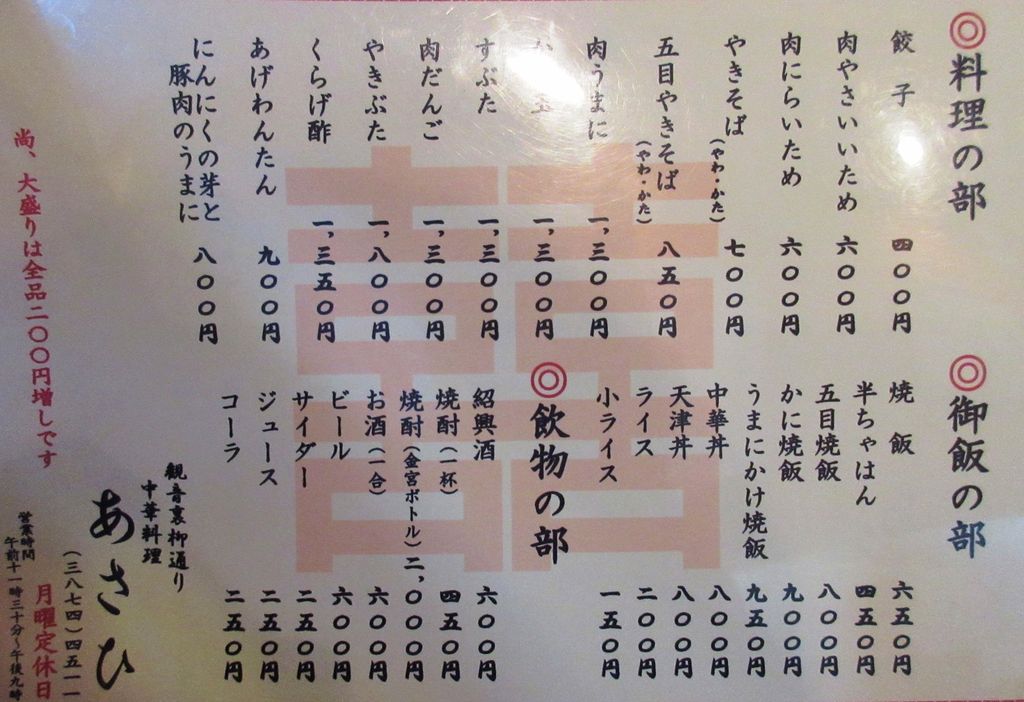 ◎料理の部
餃子 四〇〇円
肉やさいいため 六〇〇円
肉にらいため 六〇〇円
やきそば(やわ・かた) 七〇〇円
五目やきそば(やわ・かた) 八五〇円
肉うまに 一,三〇〇円
一,三〇〇円
すぶた 一,三〇〇円
肉だんご 一,三〇〇円
やきぶた 一,八〇〇円
くらげ酢 一,三五〇円
あげわんたん 九〇〇円
にんにくの芽と
豚肉のうまに 八〇〇円
◎御飯の部
焼飯 六五〇円
半ちゃはん 四五〇円
五目焼飯 八〇〇円
かに焼飯 九〇〇円
うまにかけ焼飯 九五〇円
中華丼 八〇〇円
天津丼 八〇〇円
ライス 二〇〇円
小ライス 一五〇円
◎飲物の部
紹興酒 六〇〇円
焼酎(一杯) 四五〇円
焼酎(金宮ボトル) 二,〇〇〇円
お酒(一合) 六〇〇円
ビール 六〇〇円
サイダー 二五〇円
ジュース 二五〇円
コーラ 二五〇円
尚、大盛りは全品二〇〇円増しです
観音裏柳通り
中華料理
あさひ
(三八七四)四五一一
月曜定休日
営業時間
午前十一時三十分〜午後九時